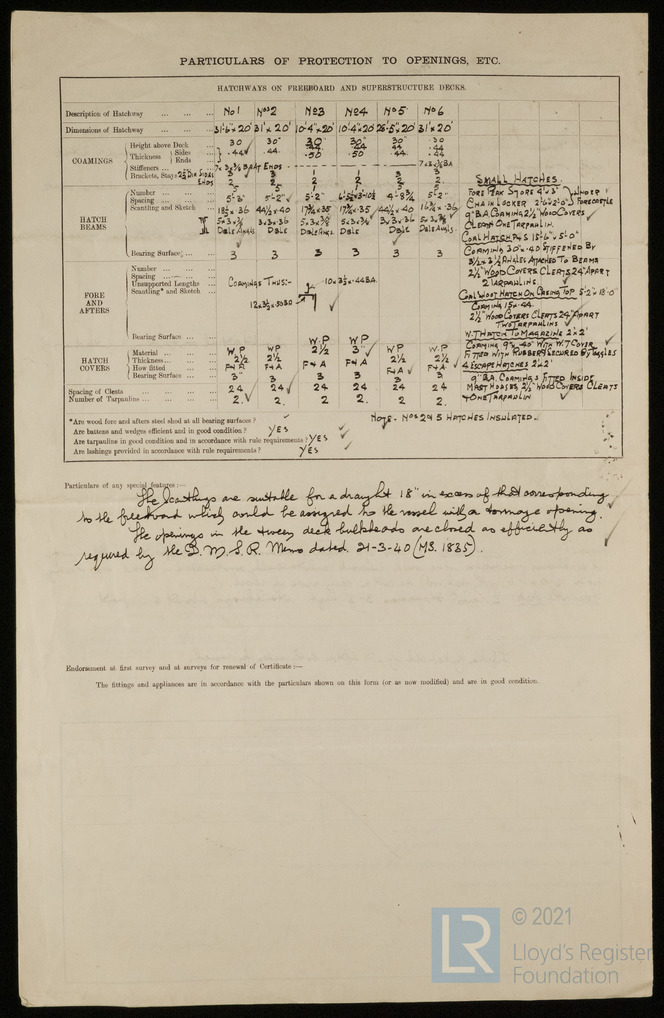 PARTICULARS OF PROTECTION TO OPENINGS, ETC.
HATCHWAYS ON FREEBOARD AND SUPERSTRUCTURE DECKS.
Description of Hatchway ... No1 Nos2 No3 No4 No5 No6
Dimensions of Hatchway ... 31'-6"x20' 31'x20' 10'-4"x20' 10'-4"x20' 26'-5"x20' 31'x20'
COAMINGS
Height above Deck ... 30 30" 30 30 30" 30
Thickness { Sides ... .44 .44 .44 .44 .44
{ Ends ... .44 .44 .50 .50 .44 .44
Stiffeners ... BA AT ENDS
Brackets, Stays SIDES 3 3 1 1 3 3
ENDS 2 2 2 2 2 2
HATCH BEAMS
Number ... 5 5 1 1 5 5
Spacing ... 5'-3" 5'-2" 5'-2" 4'-8¾ 5'-2"
Scantling and Sketch
DBLE ANGLS. DBLE DBLE ANGS. DBLE DBLE DBLE ANGLS.
Bearing Surface ... 3 3 3 3 3 3
FORE AND AFTERS
Number ...
Spacing ...
Unsupported Lengths ... COAMINGS THUS:-
Scantling* and Sketch
Bearing Surface ...
HATCH COVERS
Material ... W.P WP W.P W.P W.P W.P
Thickness ... 2½ 2½ 2½ 3" 2½ 2½
How fitted ... F+A F+A F+A F+A F+A F+A
Bearing Surface ... 3" 3 3 3 3 3
Spacing of Cleats ... 24 24 24 24 24 24
Number of Tarpaulins ... 2. 2. 2 2. 2. 2
SMALL HATCHES.
FORE PEAK STORE 4'x3' } UNDER
CHAIN LOCKER 2'-6"x2'-0" } FORECASTLE
9" B.A. COAMING 2½" WOOD COVERS
CLEATS ONE TARPAULIN.
COAL HATCH P+S 15'-6"x5'-0"
COAMING 30"x.40 STIFFENED BY
3½x3½ ANGLES ATTACHED TO BEAMS
2½" WOOD COVERS CLEATS 24" APART
2 TARPAULINS
COAL HATCH ON CASING TOP
COAMING 15x.44.
2½" WOOD COVERS CLEATS 24" APART
TWO TARPAULINS
W.T HATCH TO MAGAZINE 2'x2'
COAMING 9"x.40" WITH W.T COVER
FITTED WITH RUBBER + SECURED BY TOGGLES
4 ESCAPE HATCHES 2'x2'
9" B.A. COAMINGS FITTED INSIDE
MAST HOUSES 2½" WOOD COVERS CLEATS
+ ONE TARPAULIN
*Are wood fore and afters steel shod at all bearing surfaces?
NOTE - Nos 2 & 5 HATCHES INSULATED.
Are battens and wedges efficient and in good condition? YES
Are tarpaulins in good condition and in accordance with rule requirements? YES
Are lashings provided in accordance with rule requirements? YES
Particulars of any special features:—
The Scantlings are suitable for a draught 18" in excess of that corresponding
to the freeboard which would be assigned to the vessel with a tonnage opening.
The openings in the tween deck bulkheads are closed as efficiently as
required by the D.M.S.R. Memo dated 21-3-40 (MS. 1835).
Endorsement at first survey and at surveys for renewal of Certificate:—
The fittings and appliances are in accordance with the particulars shown on this form (or as now modified) and are in good condition.
LR
© 2021
Lloyd's Register
Foundation